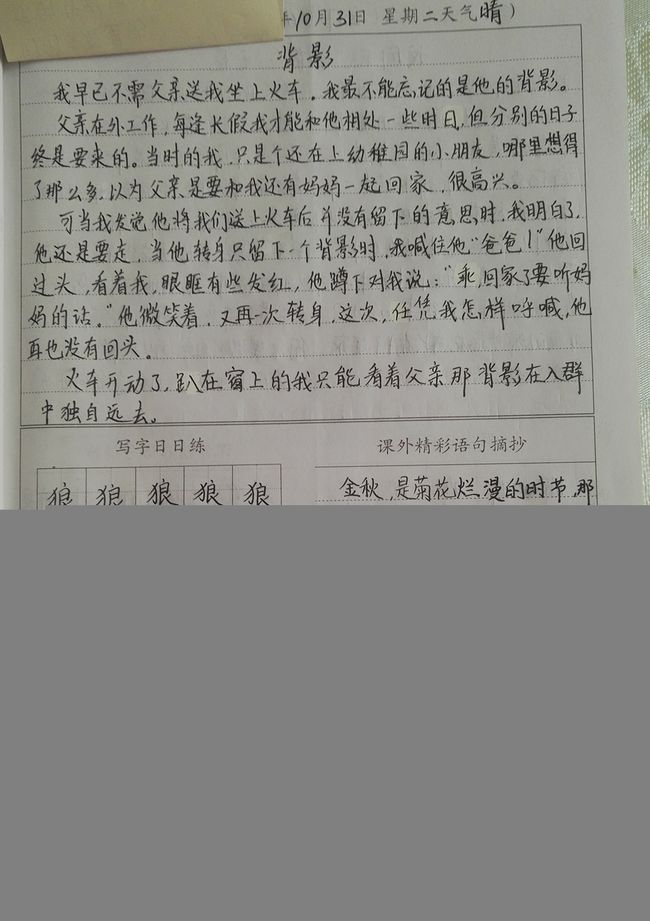 年10月31日 星期二天气晴）
背影
我早已不需父亲送我坐上火车，我最不能忘记的是他的背影。
父亲在外工作，每逢长假我才能和他相处一些时日，但分别的日子
终是要来的。当时的我，只是个还在上幼稚园的小朋友，哪里想得
了那么多，以为父亲是要和我还有妈妈一起回家，很高兴。
可当我发觉他将我们送上火车后并没有留下的意思时，我明白了，
他还是要走，当他转身只留下一个背影时，我喊住他“爸爸！”他回
过头，看着我，眼眶有些发红，他蹲下对我说：“乖，回家了要听妈
妈的话。”他微笑着，又再一次转身，这次，任凭我怎样呼喊，他
再也没有回头。
火车开动了，趴在窗上的我只能看着父亲那背影在人群
中独自远去。
写字日日练
狼 狼 狼 狼 狼
课外精彩语句摘抄
金秋，是菊花烂漫的时节，那